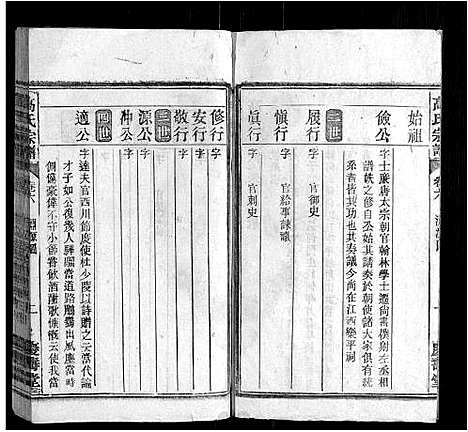 高氏宗譜
卷六
慶壽堂
始祖
儉公
字士廉唐太宗朝官翰林學士遷尚書僕射左丞
譜牒之修自丞始其請奏於朝使諸大家俱有
系者皆其功也其奏議今尚在江西樂平祠
二世
履行
字
官御史
慎行
字
官給事諫議
真行
字
官刺史
修行
字
安行
字
敬行
字
三世
源公
字
仲公
字
四世
適公
字達夫官西川節度使杜少陵以詩贈之云當代論
才子如公復幾人驊騮當道路鵰鶚出風塵當時
倜儻豪偉不守小節嘗飲酒酣歌慷慨天使我當
高氏宗譜
卷六
淵源圖
二
慶壽堂